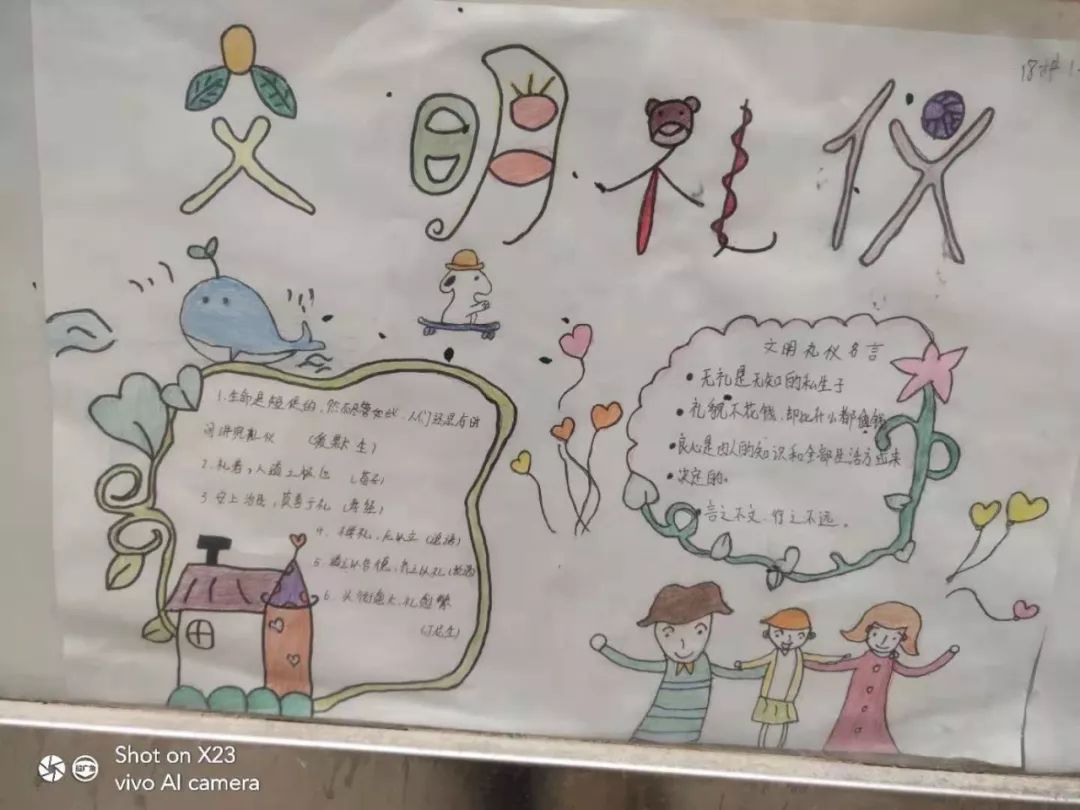 文明礼仪
18护1
1.生命是短促的,然而尽管如此,人们还是有时
间讲究礼仪 (爱默生)
2.礼者,人道之极也 (荀子)
3.安上治民,莫善于礼 (孝经)
4.不学礼,无以立 (论语)
5.道之以德,齐之以礼
6.头衔愈大,礼愈繁
(丁尼生)
文明礼仪名言
• 无礼是无知的私生子
• 礼貌不花钱,却比什么都值钱
• 良心是由人的知识和全部生活方式来
• 决定的。
• 言之不文、行之不远。
Shot on X23
vivo AI camera